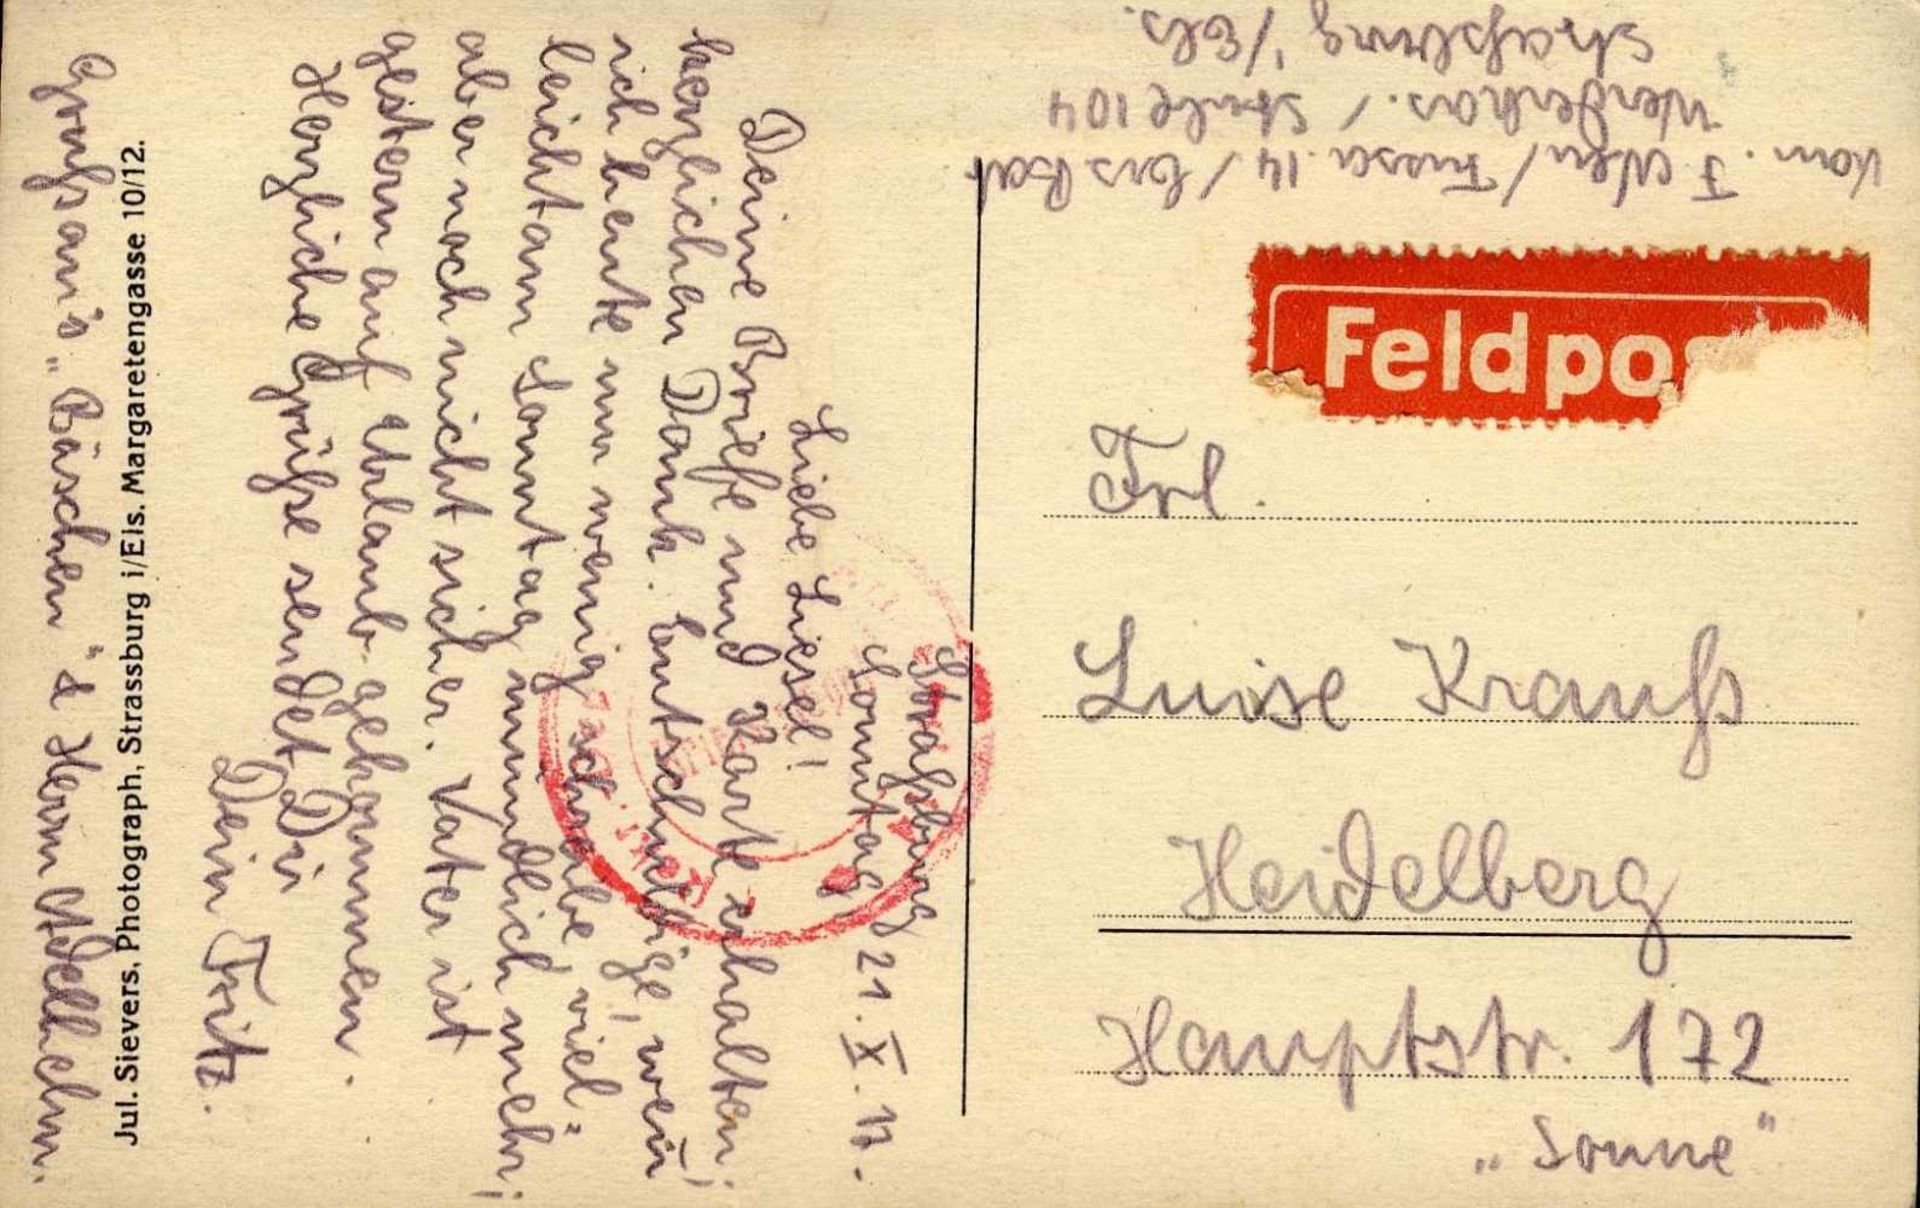 Straßburg
Sonntag, 21. X. 17.
Liebe Liesel!
Deine Briefe und Karte erhalten;
herzlichen Dank. Entschuldige, wenn
ich heute nur wenig schreibe, viel-
leicht am Sonntag mündlich mehr;
aber noch nicht sicher. Vater ist
gestern auf Urlaub gekommen.
Herzliche Grüße sendet Dir
Dein Fritz.
Gruß an's „Bäschen“ &
Jul. Sievers, Photograph, Strassburg i/Els. Margaretengasse 10/12.
Kan. / Fussa. 14 / Ers Bat
/ Stube 104
Straßburg i/Els.
Feldpos
Frl.
Luise Krauß
Heidelberg
Hauptstr. 172
„Sonne“